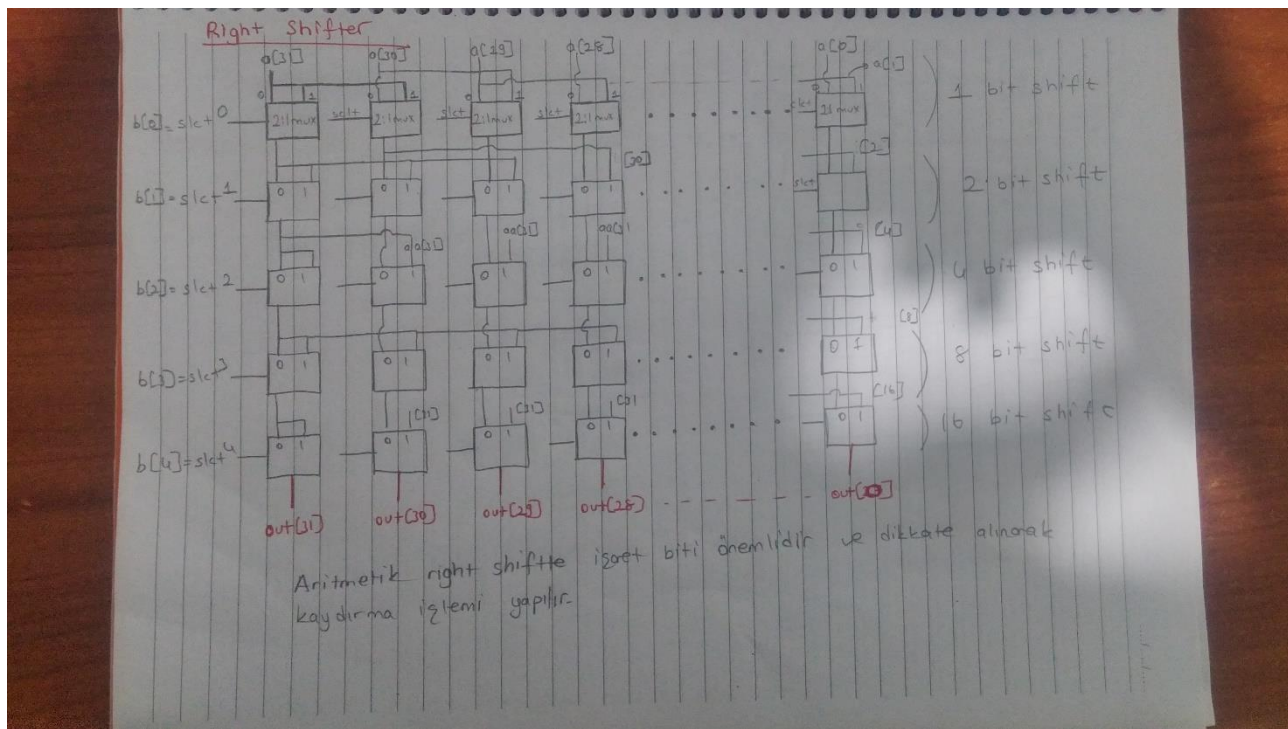 Right Shifter
a[31] a[30] a[29] a[28] a[0] a[1]
0 1 0 1 0 1 0 1
b[0]=slct0 2:1mux slct 2:1mux slct 2:1mux slct 2:1mux slct 2:1mux 1 bit shift
[30] [2]
b[1]=slct1 0 1 0 1 0 1 0 1 slct 2 bit shift
[4]
b[2]=slct2 0 1 0 1 0 1 0 1 0 1 4 bit shift
[8]
b[3]=slct3 0 1 0 1 0 1 0 1 0 1 8 bit shift
[31] [31] [16]
b[4]=slct4 0 1 0 1 0 1 0 1 0 1 16 bit shift
out[31] out[30] out[29] out[28]
Aritmetik right shiftte işaret biti önemlidir ve dikkate alınarak
kaydırma işlemi yapılır.